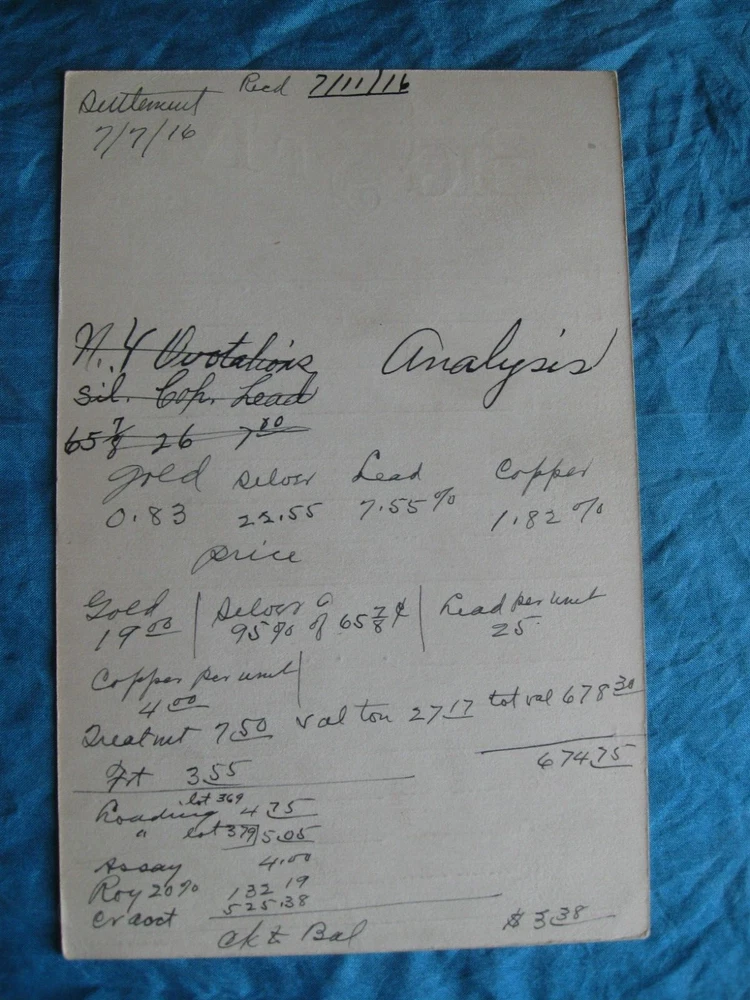 Settlement Recd 7/11/16
7/7/16
N.Y Quotations
Sil. Cop. Lead
65 7/8 26 7 00
Analysis
Gold Silver Lead Copper
0.83 22.55 7.55% 1.82%
Price
Gold | Silver | Lead per unit
19 00 | 95% of 65 7/8 ¢ | 25
Copper per unit |
4 00
Treatmt 7.50 Val ton 27 17 tot val 678 30
674 75
Frt 3 55
Loading lot 369 4 75
" lot 379 5.05
Assay 4.00
Roy 20% 132 19
Cr acct 525.38
Ck & Bal $ 3 38